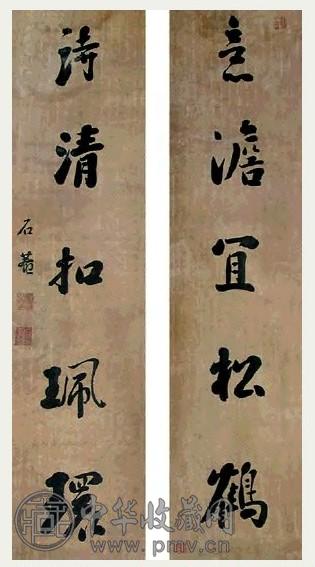 意澹宜松鹤
詩清扣珮環
石菴
中华收藏网
www.pmv.cn